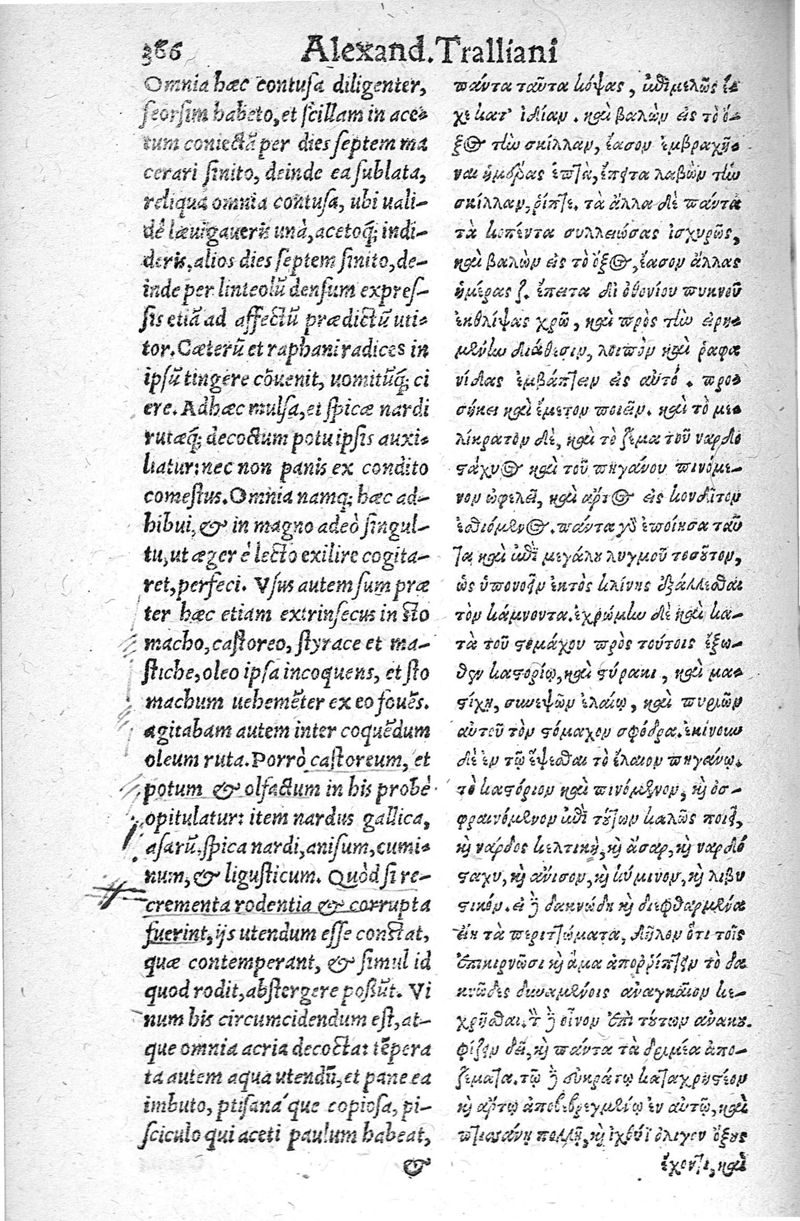 386 Alexand. Tralliani
Omnia hæc contusa diligenter,
seorsim habeto, et scillam in ace-
tum coniectā per dies septem ma
cerari sinito, deinde ea sublata,
reliqua omnia contusa, ubi uali-
dè læuigaueris unà, acetoq́; indi-
deris, alios dies septem sinito, de-
inde per linteolū densum expres-
sis etiā ad affectū prædictū uti-
tor. Cæterū et raphani radices in
ipsū tingere cōuenit, uomitūq́; ci
ere. Adhæc mulsa, et spicæ nardi
rutæq́; decoctum potu ipsis auxi-
liatur: nec non panis ex condito
comestus. Omnia namq; hæc ad-
hibui, & in magno adeò singul-
tu, ut æger è lecto exilire cogita-
ret, perfeci. Vsus autem sum præ
ter hæc etiam extrinsecus in sto
macho, castoreo, styrace et ma-
stiche, oleo ipsa incoquens, et sto
machum uehemēter ex eo fouēs.
agitabam autem inter coquēdum
oleum ruta. Porrò castoreum, et
potum & olfactum in his probè
opitulatur: item nardus gallica,
asarū, spica nardi, anisum, cumi-
num, & ligusticum. Quòd si re-
crementa rodentia & corrupta
fuerint, ijs utendum esse constat,
quæ contemperant, & simul id
quod rodit, abstergere possūt. Vi
num his circumcidendum est, at-
que omnia acria decocta: tēpera
ta autem aqua utendū, et pane ea
imbuto, ptisanáque copiosa, pi-
sciculo qui aceti paulum habeat,
&
πάντα ταῦτα κόψας, ἐπιμελῶς ἔ-
χε κατ' ἰδίαν. καὶ βαλὼν εἰς τὸ ὄ-
ξος τὴν σκίλλαν, ἔασον ἐμβραχῆ-
ναι ἡμέρας ἑπτὰ, ἔπειτα λαβὼν τὴν
σκίλλαν, ῥίπτε. τὰ ἄλλα δὲ πάντα
τὰ κοπέντα συλλειώσας ἰσχυρῶς,
καὶ βαλὼν εἰς τὸ ὄξος, ἔασον ἄλλας
ἡμέρας ζ. ἔπειτα δι' ὀθονίου πυκνοῦ
ἐκθλίψας χρῶ, καὶ πρὸς τὴν εἰρη-
μένην διάθεσιν, λοιπὸν καὶ ῥαφα
νίδας ἐμβάπτειν εἰς αὐτό. προσ-
σήκει καὶ ἔμετον ποιεῖν. καὶ τὸ με-
λίκρατον δὲ, καὶ τὸ ζέμα τοῦ ναρδο
στάχυος καὶ τοῦ πηγάνου πινόμε-
νον ὠφελεῖ, καὶ ἄρτος εἰς κονδῖτον
ἐσθιόμενος. πάντα γὸ ἐποίησα ταῦ
τα καὶ ἐπὶ μεγάλου λυγμοῦ τοσοῦτον,
ὡς ὑπονοεῖν ἐκτὸς κλίνης ἐξάλλεσθαι
τὸν κάμνοντα. ἐχρώμην δὲ καὶ κα-
τὰ τοῦ στομάχου πρὸς τούτοις ἔξω-
θεν καστορίῳ, καὶ στύρακι, καὶ μα-
στίχῃ, συνεψῶν ἐλαίῳ, καὶ πυριῶν
αὐτοῦ τὸν στόμαχον σφόδρα. ἐκίνουν
δὲ ἐν τῷ ἕψεσθαι τὸ ἔλαιον πηγάνῳ.
τὸ καστόριον καὶ πινόμενον, κὶ ὀσ-
φραινόμενον ἐπὶ τούτων καλῶς ποιεῖ,
κὶ νάρδος κελτικὴ, κὶ ἄσαρ, κὶ ναρδό
σταχυ, κὶ ἄνισον, κὶ κύμινον, κὶ λιβυ
στικόν. εἰ δὲ δακνώδη κὶ διεφθαρμένα
εἴη τὰ περιττώματα, δῆλον ὅτι τοῖς
ἐπικιρνῶσι κὶ ἅμα ἀποῤῥίπτειν τὸ δα
κνῶδες δυναμένοις ἀναγκαῖον κε-
χρῆσθαι. τὸ δὲ οἶνον ἐπὶ τούτων ἀνακου-
φίζειν δεῖ, κὶ πάντα τὰ δριμέα ἀπο-
ζέματα. τῷ δὲ εὐκράτῳ καταχρηστέον
κὶ ἄρτῳ ἀποβεβρεγμένῳ ἐν αὐτῷ, καὶ
πτισάνῃ πολλῇ, κὶ ἰχθύϊ ὀλίγον ὄξους
ἔχοντι, καὶ